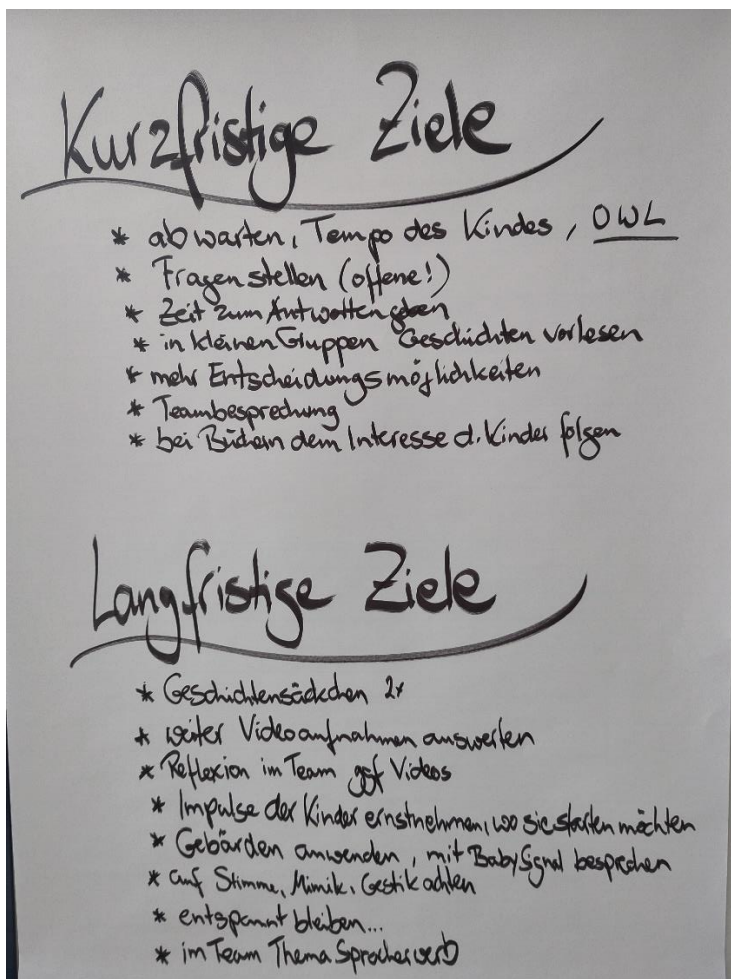 Kurzfristige Ziele
* abwarten, Tempo des Kindes, OWL
* Fragen stellen (offene!)
* Zeit zum Antworten geben
* in kleinen Gruppen Geschichten vorlesen
* mehr Entscheidungsmöglichkeiten
* Teambesprechung
* bei Büchern dem Interesse d. Kinder folgen
Langfristige Ziele
* Geschichtensäckchen 2x
* weiter Videoaufnahmen auswerten
* Reflexion im Team ggf Videos
* Impulse der Kinder ernstnehmen, wo sie starten möchten
* Gebärden anwenden, mit BabySignal besprechen
* auf Stimme, Mimik, Gestik achten
* entspannt bleiben...
* im Team Thema Spracherwerb